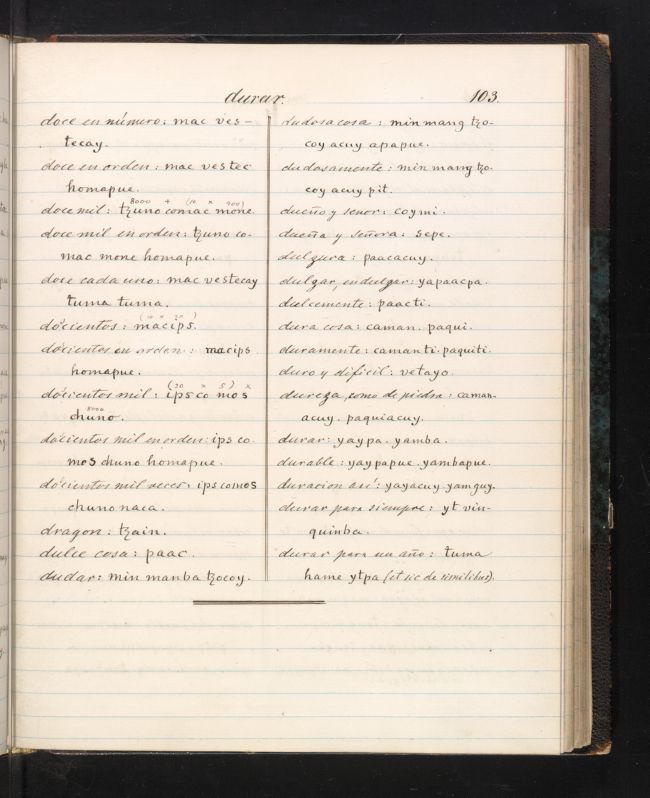 durar.
103.
doce en número: mac ves-
tecay.
doce en orden: mac vestec
homapue.
8000 + (10 x 400)
doce mil: tzuno comac mone.
doce mil en orden: tzuno co-
mac mone homapue.
doce cada uno: mac vestecay
tuma tuma.
(10 x 20)
docientos: macips.
docientos en orden: macips
homapue.
(20 x 5) x
docientos mil: ipsco mos
8000
chuno.
docientos mil en orden: ips co
mos chuno homapue.
docientos mil veces: ips comos
chuno naca.
dragon: tzain.
dulce cosa: paac.
dudar: min manba tzocoy.
dudosa cosa: min mang tzo-
coy acuy apapue.
dudosamente: min mang tzo-
coy acuy pit.
dueño y señor: coymi.
dueña y señora: sepe.
dulzura: paacacuy.
dulzar, endulzar: yapaacpa.
dulcemente: paacti.
dura cosa: caman. paqui.
duramente: camanti. paquiti.
duro y dificil: vetayo.
dureza, como de piedra: caman-
acuy. paquiacuy.
durar: yaypa. yamba.
durable: yaypapue. yambapue.
duracion asi: yayacuy. yamguy.
durar para siempre: yt vin-
quinba.
durar para un año: tuma
hame ytpa (et sic de similibus).